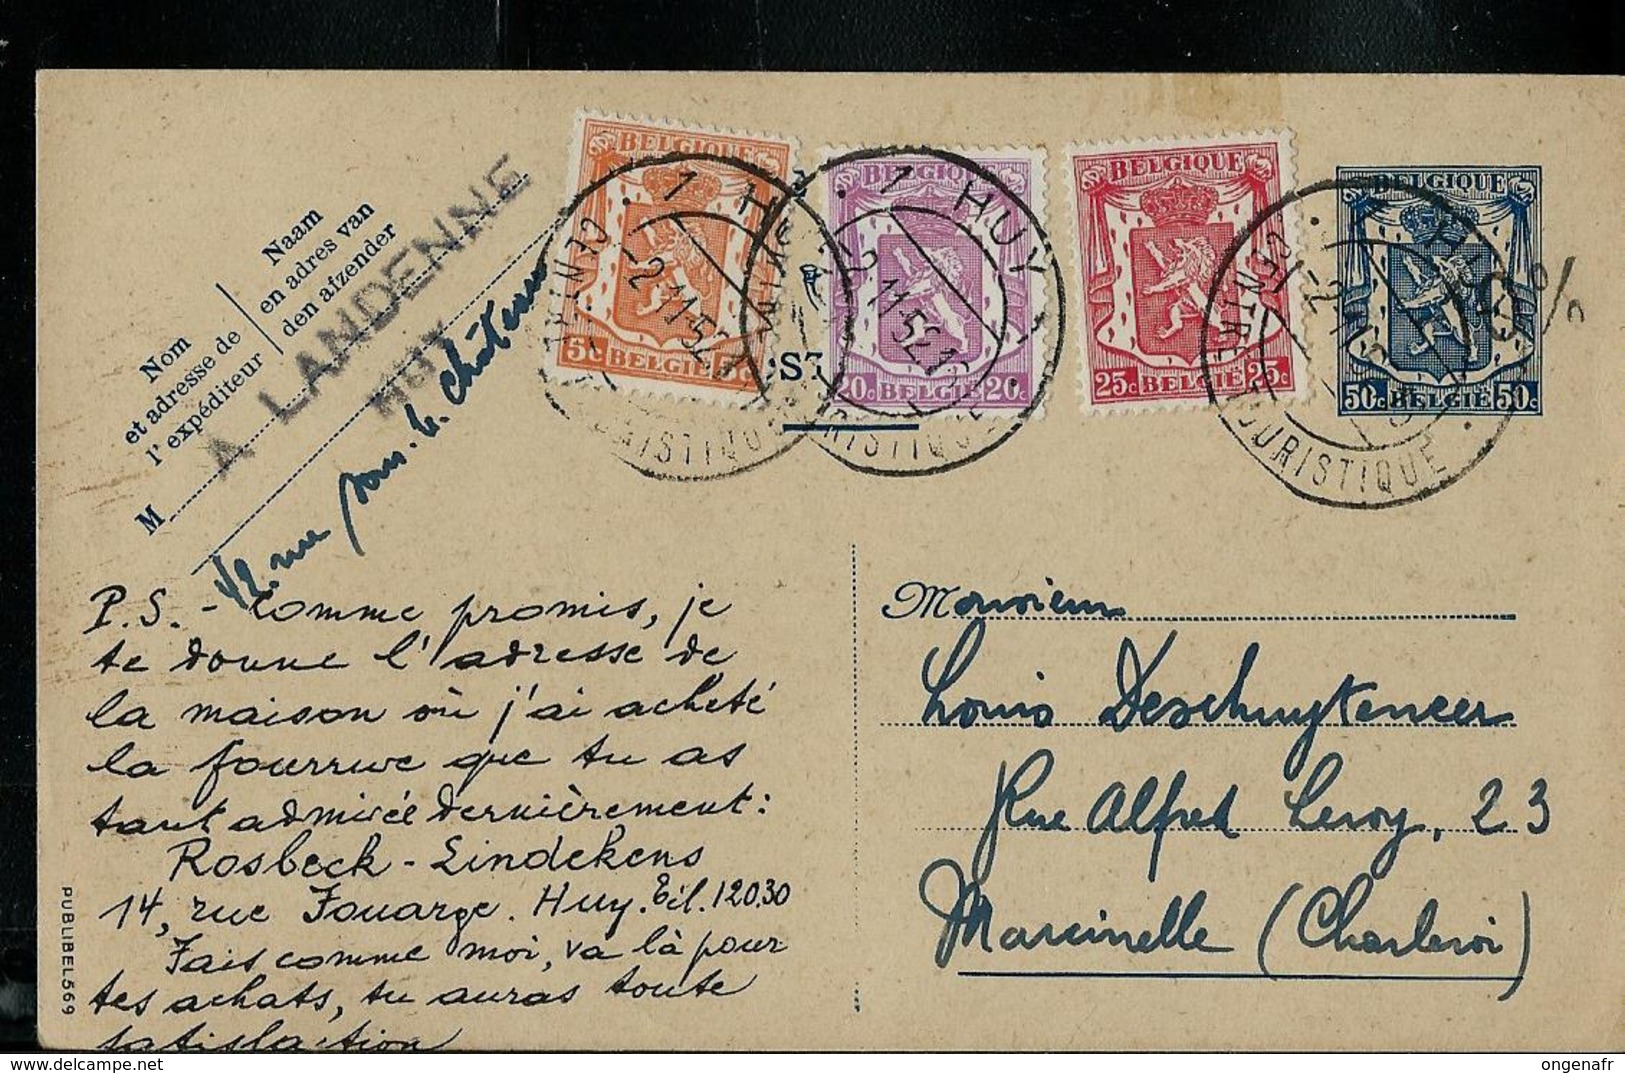 Nom
et adresse de
l'expéditeur
Naam
en adres van
den afzender
M
A LANDENNE
HUY
BELGIQUE
5c BELGIE 5c
BELGIQUE
20c BELGIE 20c
BELGIQUE
25c BELGIE 25c
BELGIQUE
50c BELGIË 50c
1 HUY 1
-2.11.52
CENTRE TOURISTIQUE
P.S. - Comme promis, je
te donne l'adresse de
la maison où j'ai acheté
la fourrure que tu as
tant admirée dernièrement:
Rosbeck - Lindekens
14, rue Fouarge. Huy. Tél. 120.30
Fais comme moi, va là pour
tes achats, tu auras toute
satisfaction
PUBLIBEL 569
Monsieur
Louis Deschuyteneer
Rue Alfred Leroy, 23
Marcinelle (Charleroi)
ongenafr